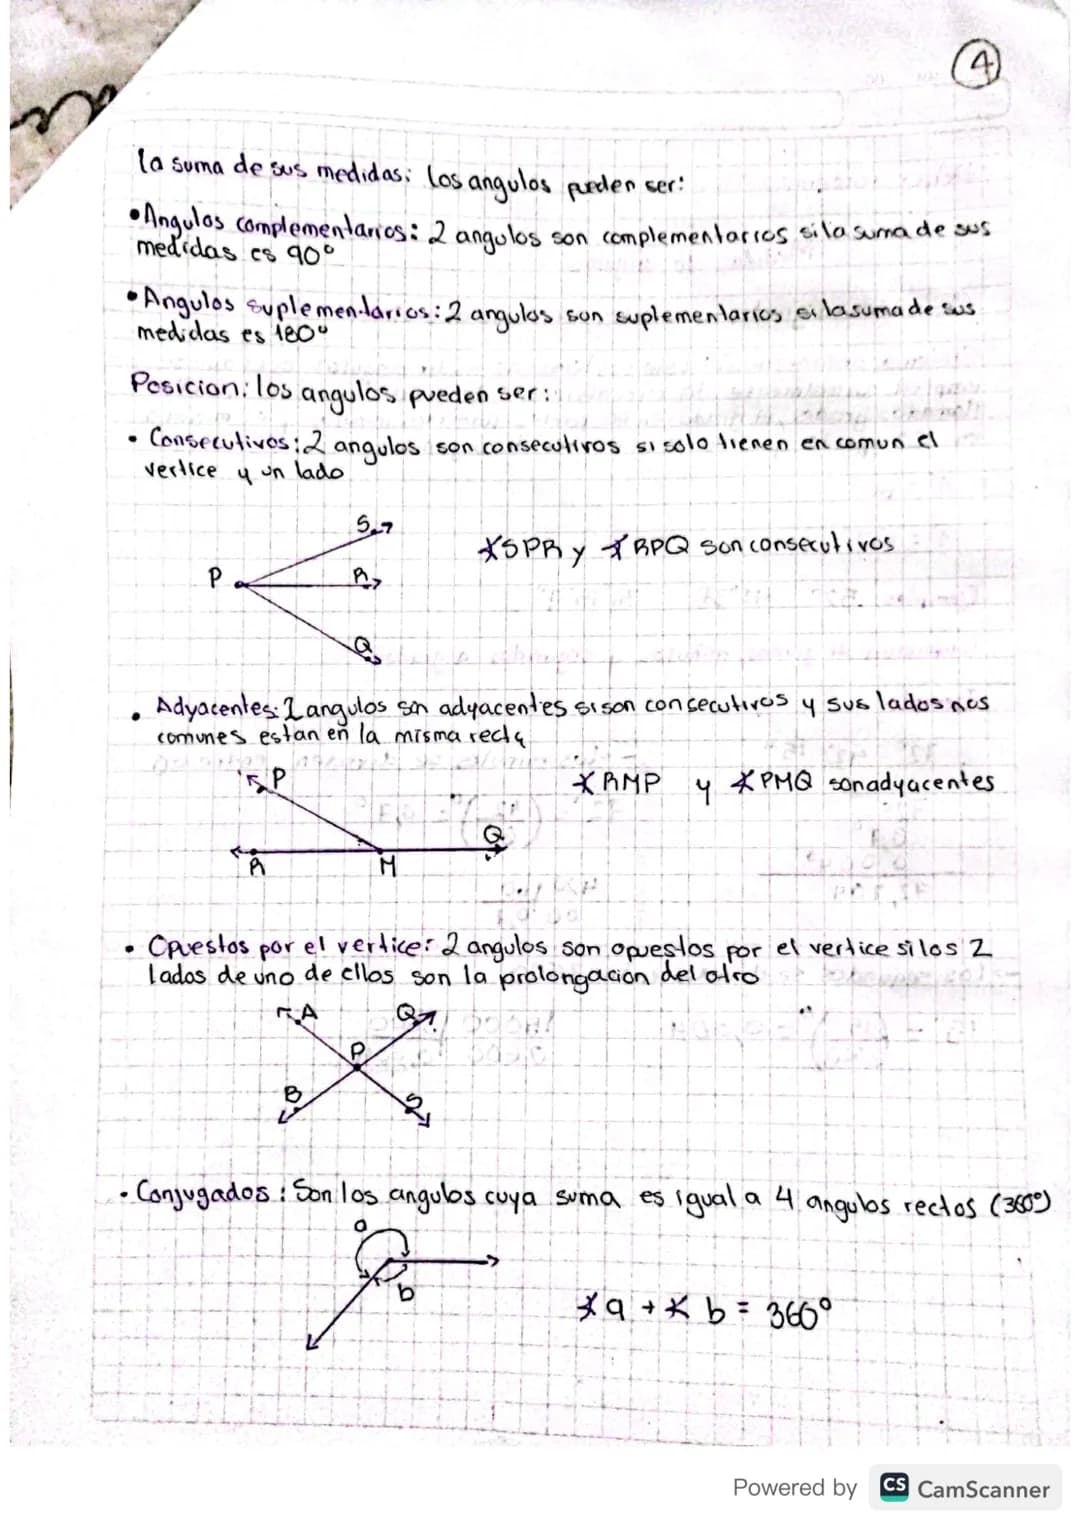 4
la suma de sus medidas; los angulos pueden ser:
•Angulos complementarios: 2 angulos son complementarios si la suma de sus
medidas es 90°
•Angulos suplementarios: 2 angulos son suplementarios si la suma de sus
medidas es 180°
Posicion: los angulos pueden ser:
• Consecutivos; 2 angulos son consecutivos si solo tienen en comun el
vertice y un lado
S
∡SPR y ∡RPQ son consecutivos
P R
Q
• Adyacentes: 2 angulos son adyacentes si son consecutivos y sus lados nos
comunes estan en la misma recta
P
∡RMP y ∡PMQ son adyacentes
Q
R M
• Opuestos por el vertice: 2 angulos son opuestos por el vertice si los 2
lados de uno de ellos son la prolongacion del otro
A Q
P
B S
• Conjugados: Son los angulos cuya suma es igual a 4 angulos rectos (360°)
a
b
∡a + ∡b = 360°
Powered by CS CamScanner